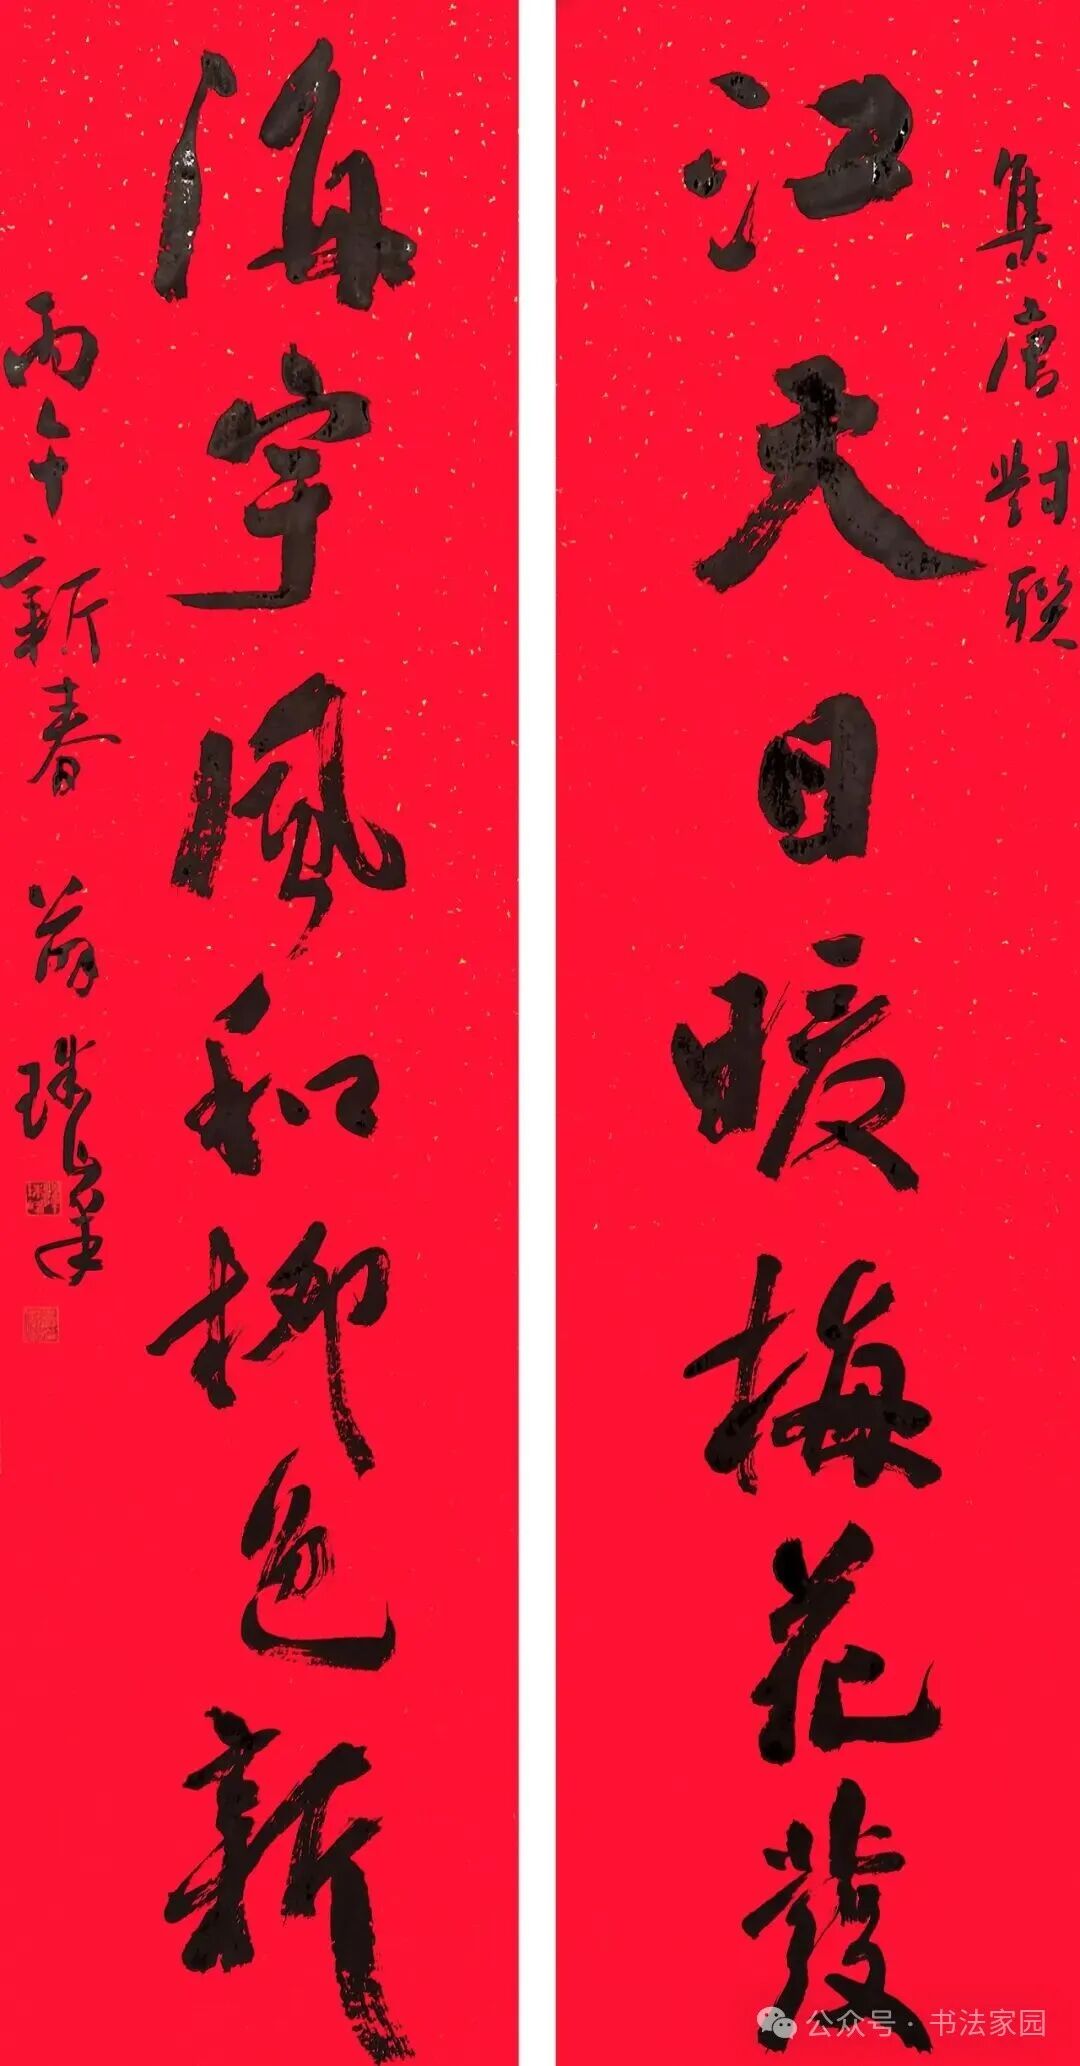 集唐對聯
江天日暖梅花發
海宇風和柳色新
丙午新春 薛珠峯
公众号·书法家园